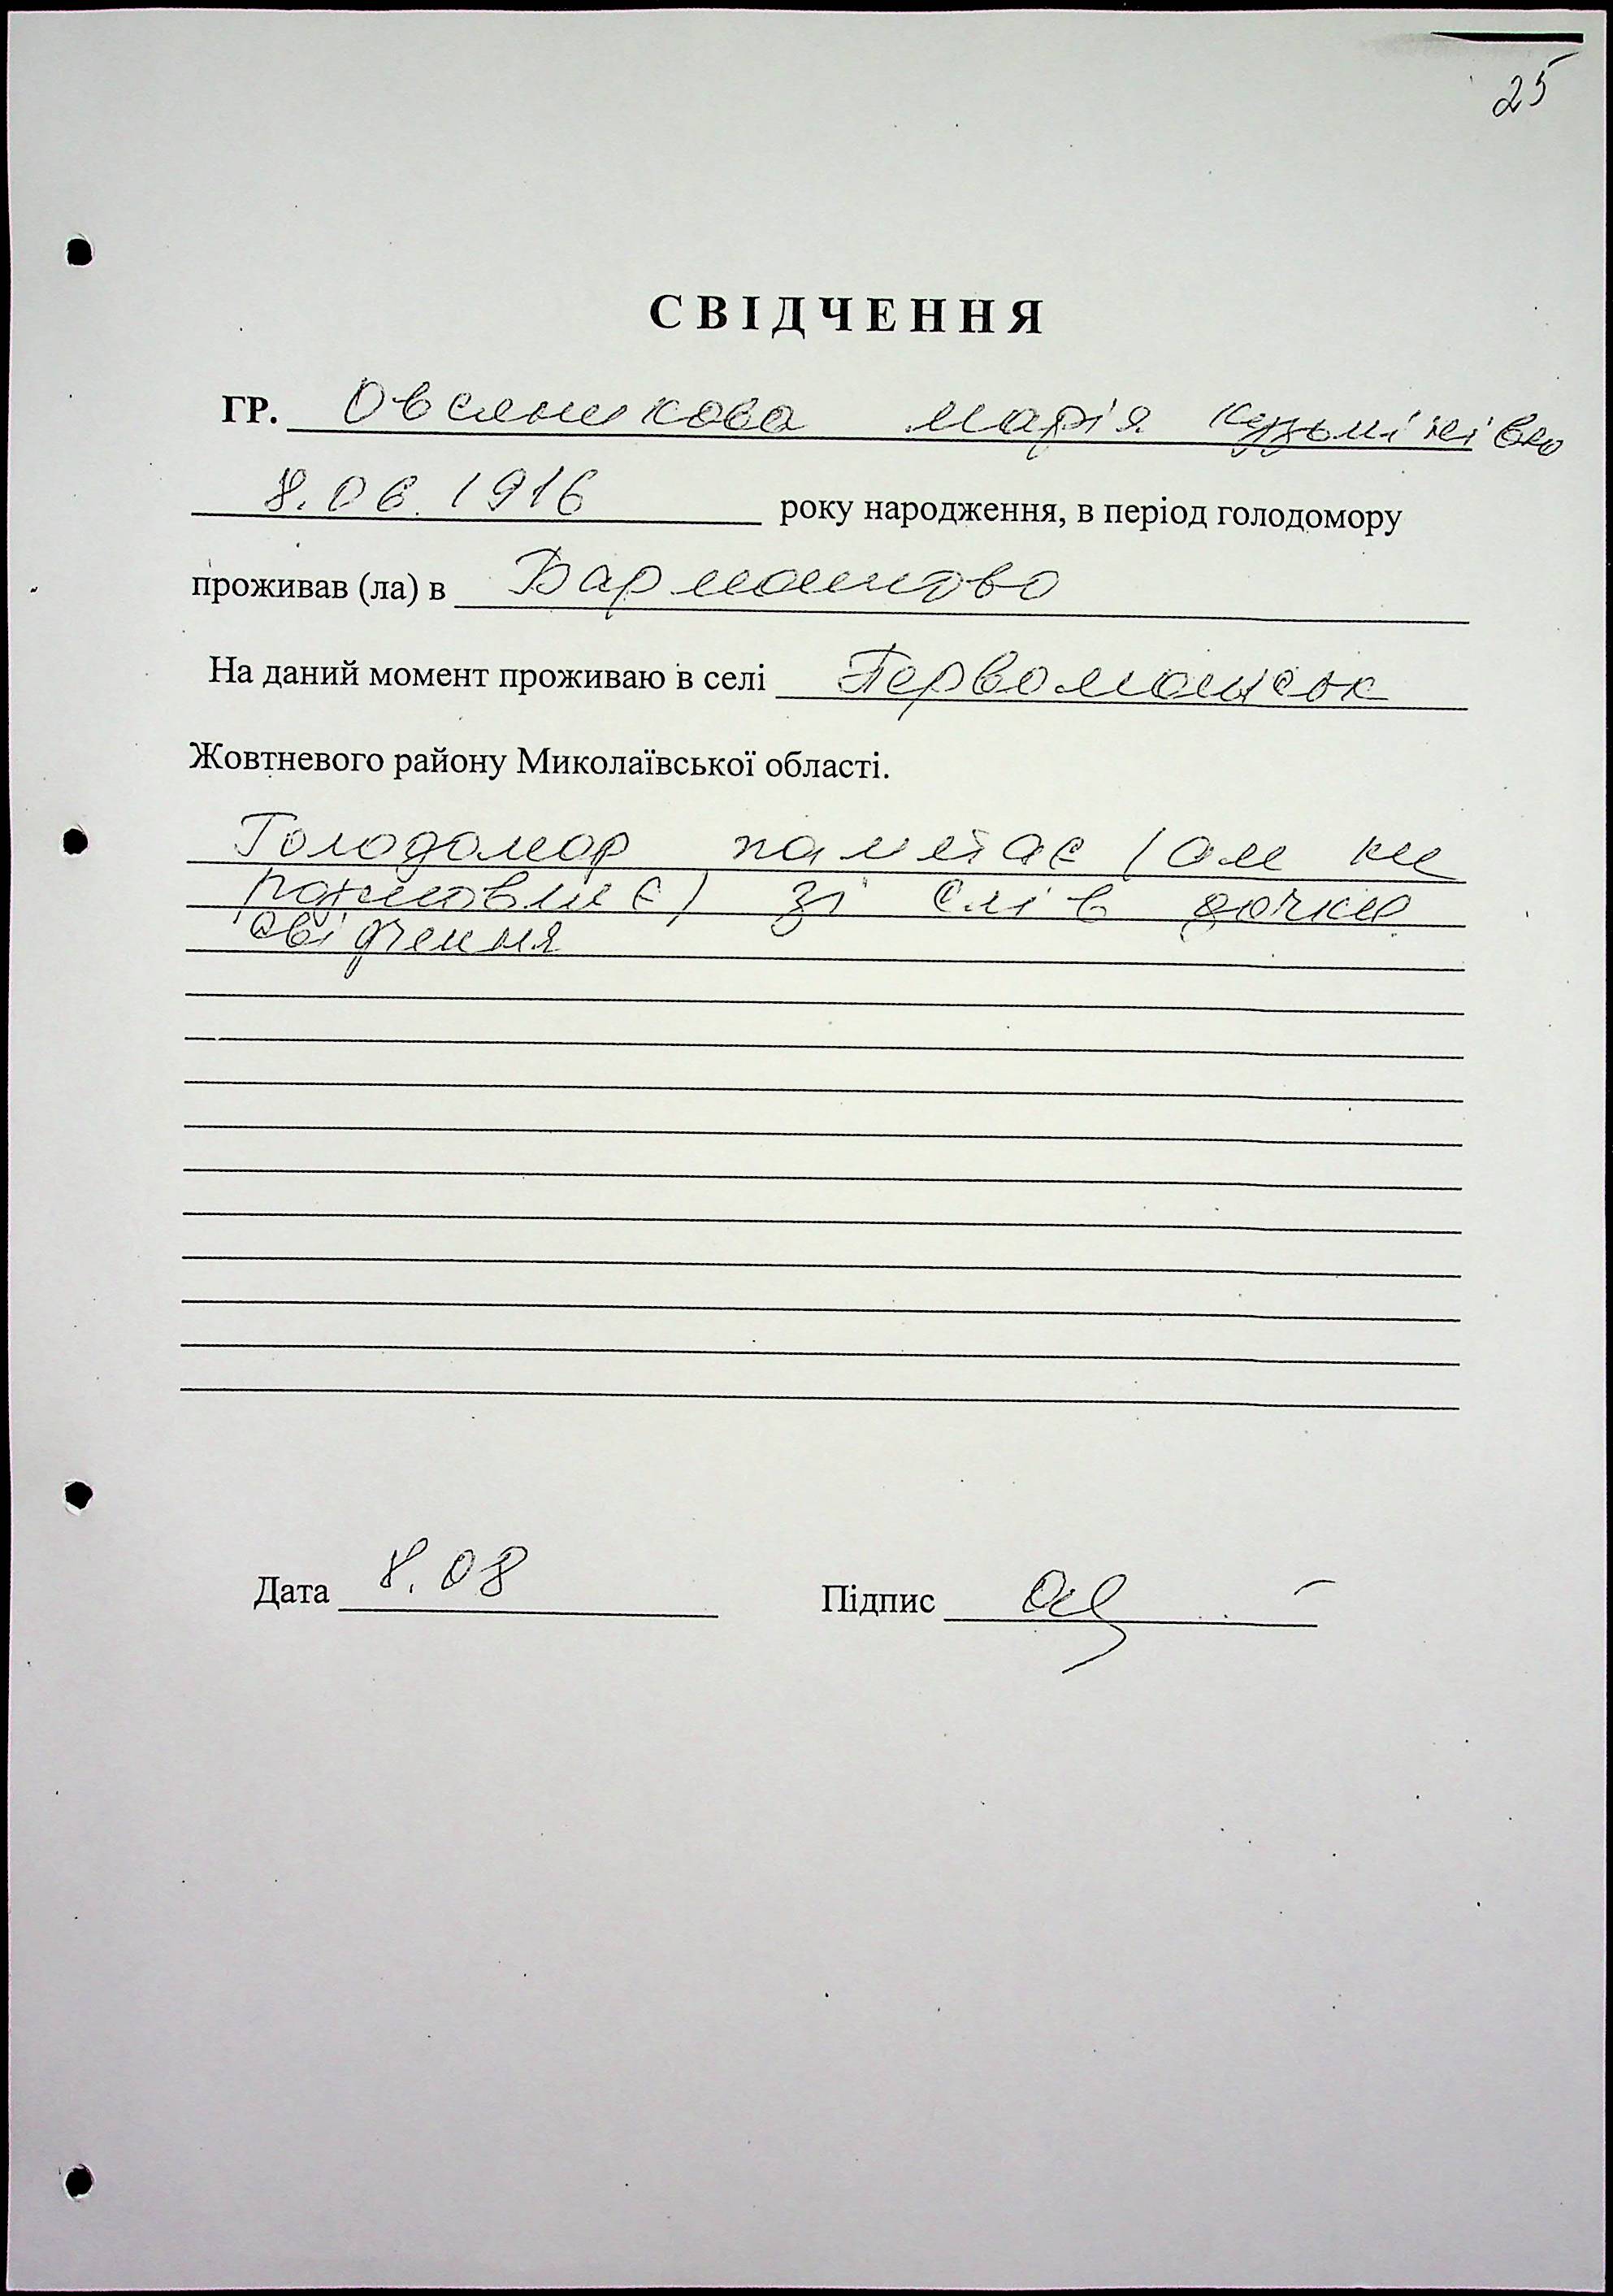 25
СВІДЧЕННЯ
ГР. Овсяникова Марія Кузьмінівна
8.06.1916 року народження, в період голодомору
проживав (ла) в Бармашово
На даний момент проживаю в селі Первомайськ
Жовтневого району Миколаївської області.
Голодомор памятає (але не
розмовляє) зі слів дочки
свідчення
Дата 8.08 Підпис